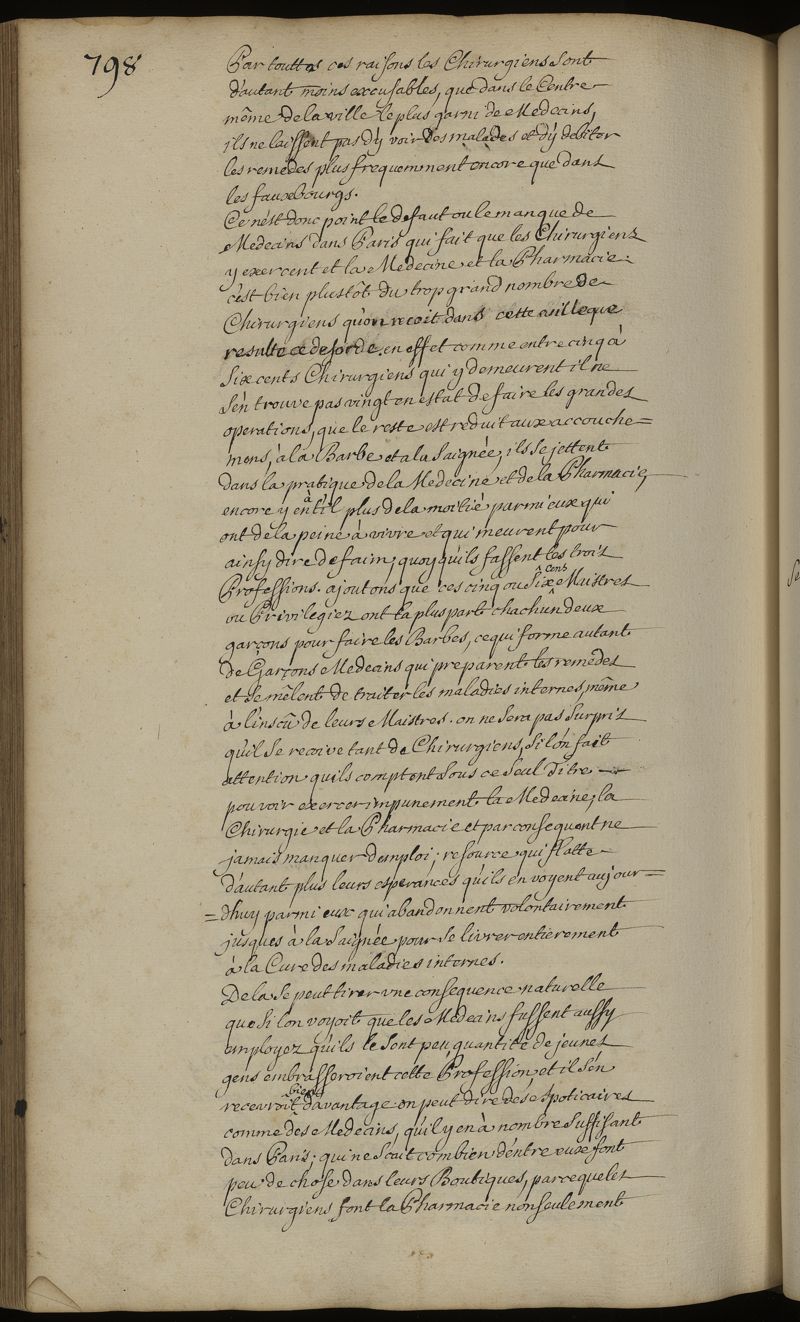 798
Par touttes ces raisons les Chirurgiens sont
d'autant moins excusables, que dans le Centre
même de la ville le plus garni de Medecins,
ils ne laissent pas d'y voir des malades et d'y debiter
les remedes plus frequemment encore que dans
les fauxbourgs.
Ce n'est donc point le defaut ou le manque de
Medecins dans Paris qui fait que les Chirurgiens
y exercent et la Medecine et la Pharmacie:
c'est bien plustôt du trop grand nombre de
Chirurgiens qu'on recoit dans cette ville que
resulte ce desordre. en effet comme entre cinq à
Six cents Chirurgiens qui y demeurent il ne
s'en trouve pas vingt en estat de faire les grandes
operations, que le reste est reduit aux accouche=
mens, à la Barbe et a la Saignée; ils se jettent
dans la pratique de la Medecine et de la Pharmacie,
encore y en à t'il plus de la moitié parmi eux qui
ont de la peine à vivre et qui meurent pour
ainsy dire de faim; quoy qu'ils fassent les trois
Professions. ajoutons que ces cinq ou Six cens Maistres
ou Privilegiez ont la plus part chachun deux
garçons pour faire les Barbes, ce qui forme autant
de Garçons Medecins qui preparent les remedes
et se mêlent de traiter les maladies internes, même
à l'insçû de leurs Maistres. on ne sera pas surpris
qu'il se recoive tant de Chirurgiens, si l'on fait
attention quils comptent sous ce seul Titre
pouvoir exercer impunement la Medecine, la
Chirurgie et la Pharmacie et par consequent ne
jamais manquer d'emploi; resource qui flatte
d'autant plus leurs esperances qu'ils en voyent aujour=
=dhuy parmi eux qui abandonnent volontairement
jusques à la Saignée pour se livrer entierement
à la Cure des maladies internes.
De la se peut tirer une consequence naturelle
que si l'on voyoit que les Medecins fussent aussy
employez qu'ils le sont peu, quantité de jeunes
gens embrasseroient cette Profession et il s'en
recevroit bien davantage on peut dire des Apoticaires
comme des Medecins, qu'il y en à nombre suffisant
dans Paris; qui ne scait combien d'entre eux font
peu de chose dans leurs Boutiques, parce que les
Chirurgiens font la Pharmacie non seulement